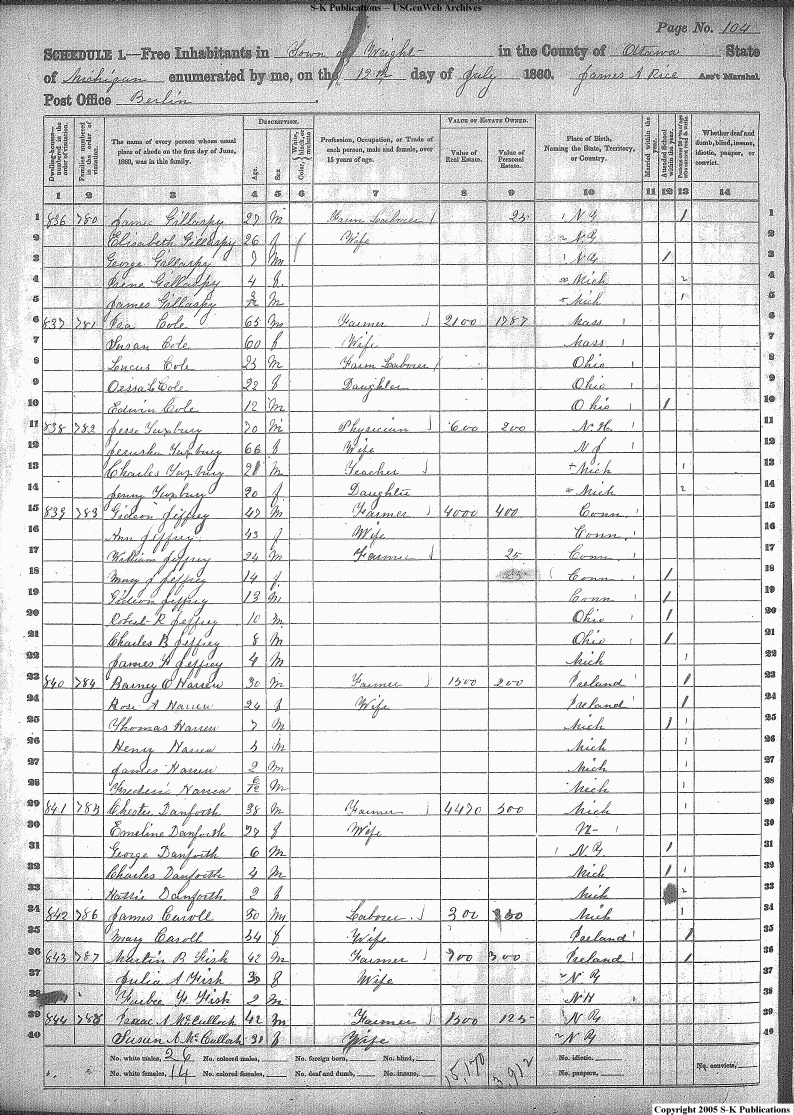 S-K Publications -- USGenWeb Archives
Page No. 104
SCHEDULE 1.—Free Inhabitants in Town of Wright in the County of Ottawa State
of Michigan enumerated by me, on the 12th day of July 1860. James A Rice Ass't Marshal.
Post Office Berlin
Dwelling-houses—numbered in the order of visitation.
Families numbered in the order of visitation.
The name of every person whose usual place of abode on the first day of June, 1860, was in this family.
DESCRIPTION.
Age.
Sex.
Color, White, black, or mulatto.
Profession, Occupation, or Trade of each person, male and female, over 15 years of age.
VALUE OF ESTATE OWNED.
Value of Real Estate.
Value of Personal Estate.
Place of Birth, Naming the State, Territory, or Country.
Married within the year.
Attended School within the year.
Whether deaf and dumb, blind, insane, idiotic, pauper, or convict.
1 2 3 4 5 6 7 8 9 10 11 12 13 14
1 836 780 James Gillaspy 27 M Farm Laborer 25 N Y 1 1
2 Elisabeth Gillaspy 26 f Wife N Y 2
3 George Gillaspy 7 M N Y 1 3
4 Irene Gillaspy 4 f Mich 2 4
5 James Gillaspy M Mich 1 5
6 837 781 Ira Cole 65 M Farmer 2100 1787 Mass 6
7 Susan Cole 60 f Wife Mass 7
8 Lucus Cole 23 M Farm Laborer Ohio 8
9 Cole 22 f Daughter Ohio 9
10 Edwin Cole 12 M Ohio 1 10
11 838 782 Jesse Tuxbury 70 M Physician 600 200 N.H. 11
12 Jerusha Tuxbury 66 f Wife N J 12
13 Charles Tuxbury 21 M Teacher Mich 1 13
14 Jenny Tuxbury 20 f Daughter Mich 2 14
15 839 783 Gideon Jeffrey 47 M Farmer 4000 400 Conn. 15
16 Ann Jeffrey 43 f Wife Conn. 16
17 William Jeffrey 24 M Farmer 25 Conn. 17
18 Mary J Jeffrey 14 f Conn 1 18
19 Gideon Jeffrey 13 M Conn 1 19
20 Robert R Jeffrey 10 M Ohio 1 20
21 Charles B Jeffrey 8 M Ohio 1 21
22 James H Jeffrey 4 M Mich 1 22
23 840 784 Barney O Harren 30 M Farmer 1500 200 Ireland 1 23
24 Rose A Harren 24 f Wife Ireland 1 24
25 Thomas Harren 7 M Mich 1 1 25
26 Henry Harren M Mich 1 26
27 James Harren 2 M Mich 1 27
28 Frederic Harren 6/12 M Mich 1 28
29 841 785 Chester Danforth 38 M Farmer 4470 500 Mich 1 29
30 Emeline Danforth 27 f Wife 30
31 George Danforth 6 M N.Y 1 31
32 Charles Danforth 4 M Mich 1 1 32
33 Hattie Danforth 2 f Mich 2 33
34 842 786 James Caroll 50 M Laborer 300 Mich 1 34
35 Mary Caroll 34 f Wife Ireland 1 35
36 843 787 Martin B Fisk 42 M Farmer 300 Ireland 1 36
37 Julia A Fisk f Wife N Y 37
38 Fisk 2 M N H 38
39 844 788 Isaac A McCulloch 42 M Farmer 1500 125 N Y 39
40 Susan A McCulloch 31 f Wife N Y 40
No. white males, 26 No. colored males, No. foreign born, No. blind, 15,170 3,912 No. idiotic, No. convicts,
No. white females, 14 No. colored females, No. deaf and dumb, No. insane, No. paupers,
Copyright 2005 S-K Publications